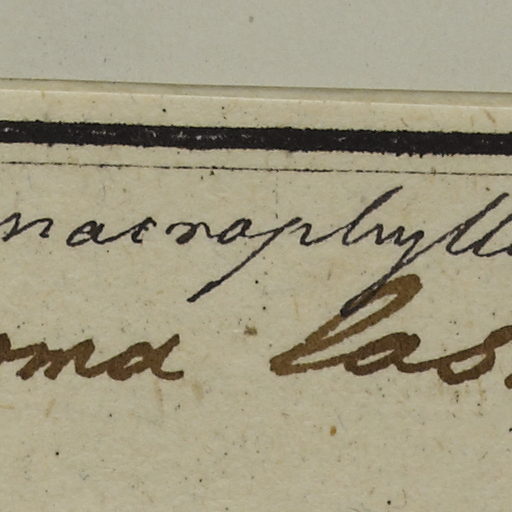 macrophyll
oma las